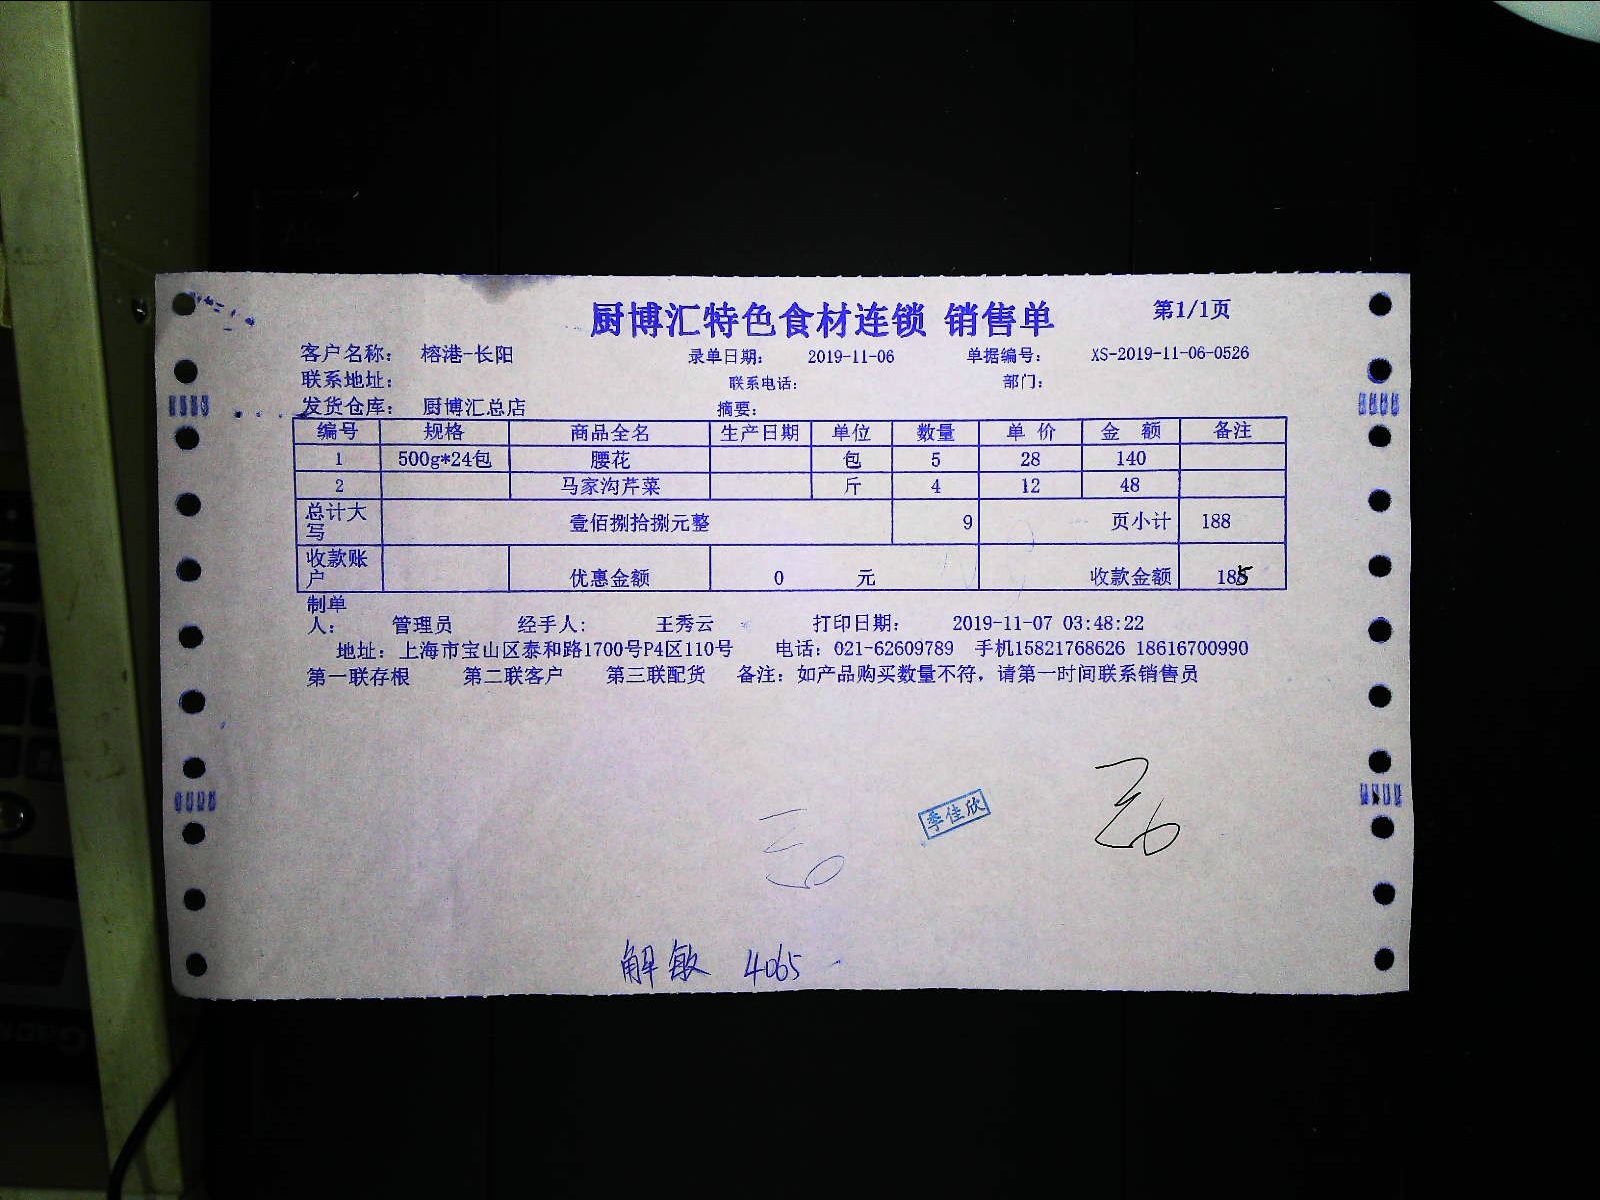 厨博汇特色食材连锁 销售单 第1/1页
客户名称： 榕港-长阳 录单日期： 2019-11-06 单据编号： XS-2019-11-06-0526
联系地址： 联系电话： 部门：
发货仓库： 厨博汇总店 摘要：
编号 规格 商品全名 生产日期 单位 数量 单 价 金 额 备注
1 500g*24包 腰花 包 5 28 140
2 马家沟芹菜 斤 4 12 48
总计大写 壹佰捌拾捌元整 9 页小计 188
收款账户 优惠金额 0 元 收款金额
制单人： 管理员 经手人： 王秀云 打印日期： 2019-11-07 03:48:22
地址：上海市宝山区泰和路1700号P4区110号 电话：021-62609789 手机15821768626 18616700990
第一联存根 第二联客户 第三联配货 备注：如产品购买数量不符，请第一时间联系销售员
季佳欣
解敏 4065